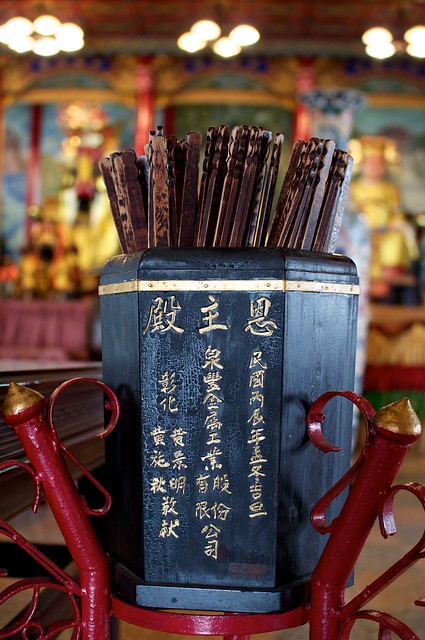 恩主殿
民國丙辰年孟冬吉旦
泉豐金属工業股份有限公司
彰化 黃景明
黃施秋敬献